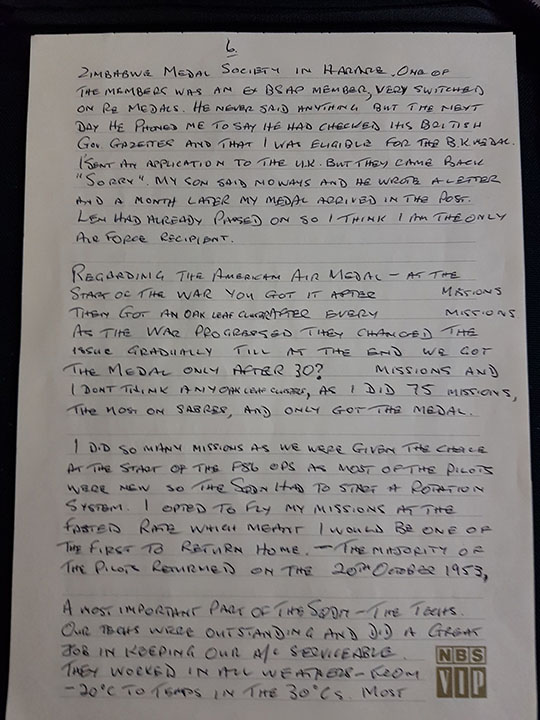 6.
ZIMBABWE MEDAL SOCIETY IN HARARE. ONE OF
THE MEMBERS WAS AN EX BSAP MEMBER, VERY SWITCHED
ON RE MEDALS. HE NEVER SAID ANYTHING BUT THE NEXT
DAY HE PHONED ME TO SAY HE HAD CHECKED HIS BRITISH
GOV GAZETTES AND THAT I WAS ELIGIBLE FOR THE B.K MEDAL.
I SENT AN APPLICATION TO THE U.K. BUT THEY CAME BACK
"SORRY". MY SON SAID NOWAYS AND HE WROTE A LETTER
AND A MONTH LATER MY MEDAL ARRIVED IN THE POST.
LEN HAD ALREADY PASSED ON SO I THINK I AM THE ONLY
AIR FORCE RECIPIENT.
REGARDING THE AMERICAN AIR MEDAL – AT THE
START OF THE WAR YOU GOT IT AFTER MISSIONS
THEN GOT AN OAK LEAF CLUSTER AFTER EVERY MISSIONS
AS THE WAR PROGRESSED THEY CHANGED THE
ISSUE GRADUALLY TILL AT THE END WE GOT
THE MEDAL ONLY AFTER 30? MISSIONS AND
I DONT THINK ANY OAK LEAF CLUSTERS, AS I DID 75 MISSIONS,
THE MOST ON SABRES, AND ONLY GOT THE MEDAL.
I DID SO MANY MISSIONS AS WE WERE GIVEN THE CHOICE
AT THE START OF THE F86 OPS AS MOST OF THE PILOTS
WERE NEW SO THE SQDN HAD TO START A ROTATION
SYSTEM. I OPTED TO FLY MY MISSIONS AT THE
FASTED RATE WHICH MEANT I WOULD BE ONE OF
THE FIRST TO RETURN HOME. – THE MAJORITY OF
THE PILOTS RETURNED ON THE 20TH OCTOBER 1953,
A MOST IMPORTANT PART OF THE SQDN – THE TECHS.
OUR TECHS WERE OUTSTANDING AND DID A GREAT
JOB IN KEEPING OUR A/C SERVICEABLE.
THEY WORKED IN ALL WEATHERS – FROM
-20°C TO TEMPS IN THE 30°CS. MOST
NBS
VIP